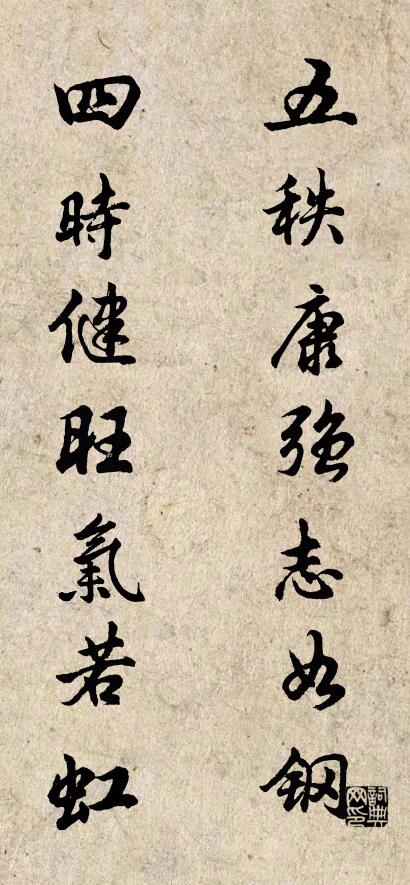 五秩康強志如鋼
四時健旺氣若虹
詞典網印